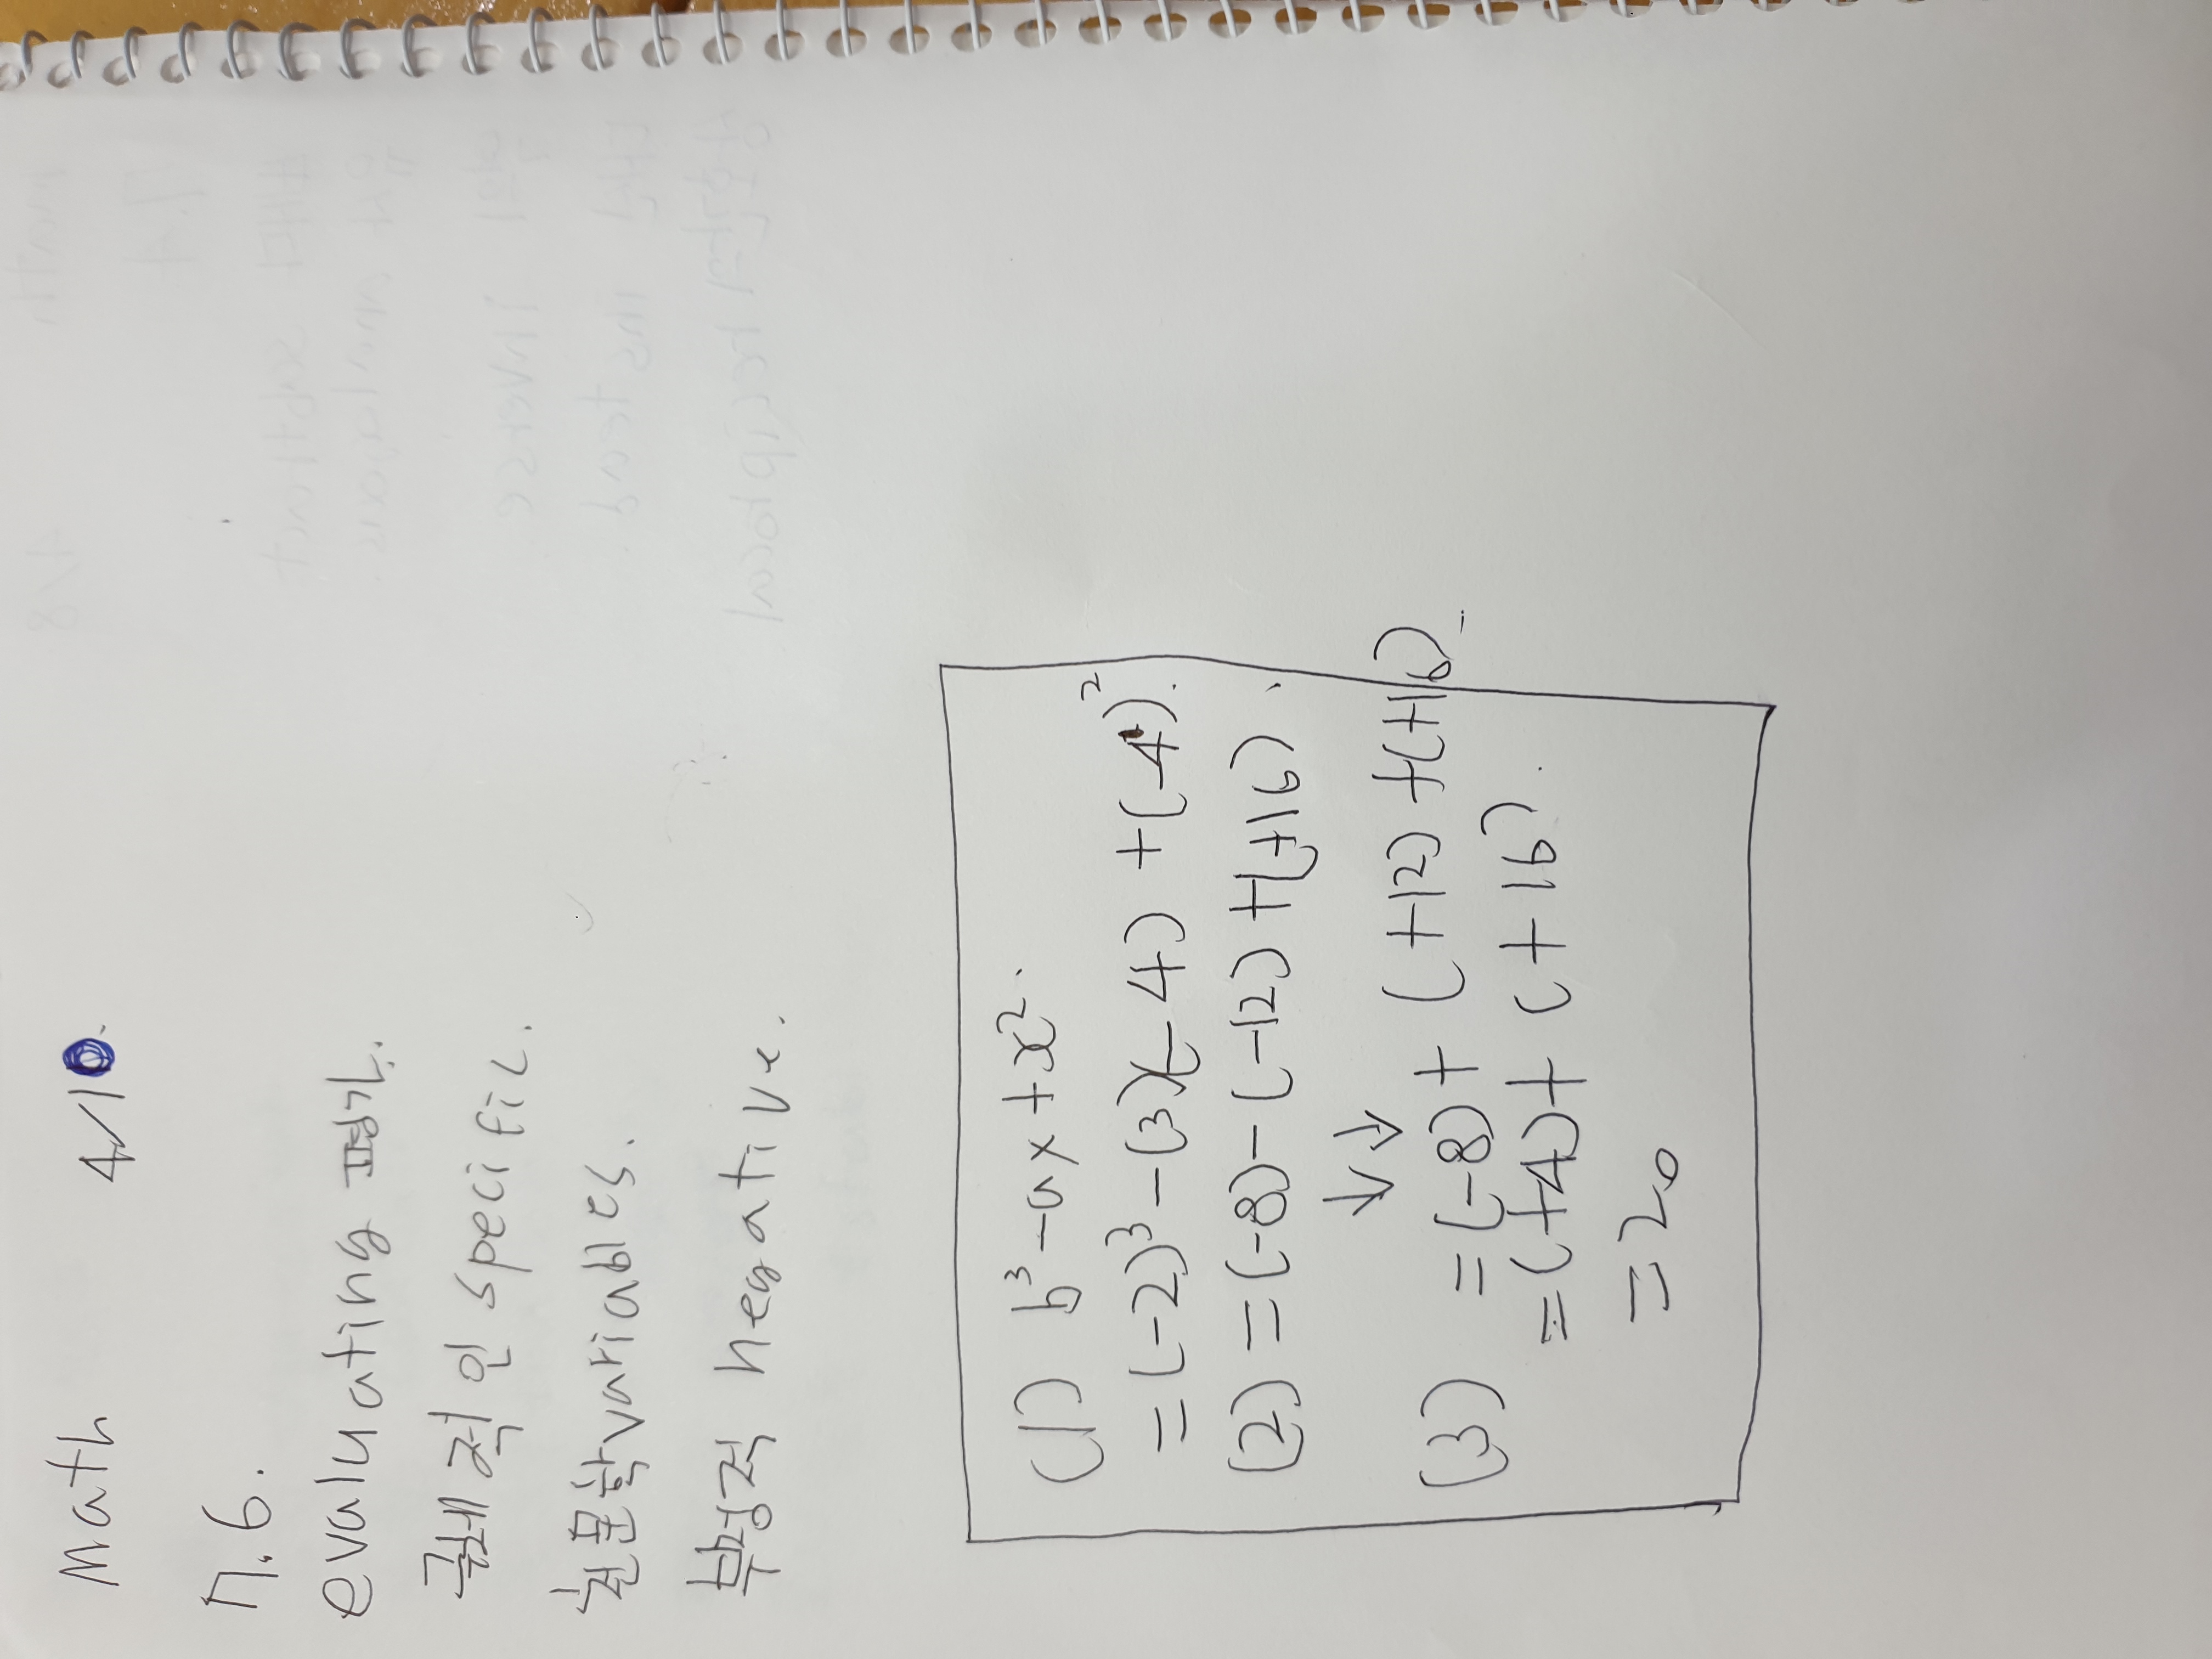 Math 4/10.
n.6.
evaluating 평가.
궤적인 specific.
천문학variables.
부정적 negative.
(1) b³-ax+x².
=(-2)³-(3)(-4)+(-4)².
(2) =(-8)-(-12)+(+16).
↓↓
(3) =(-8)+(+12)+(+16)
=(+4)+(+16).
=20